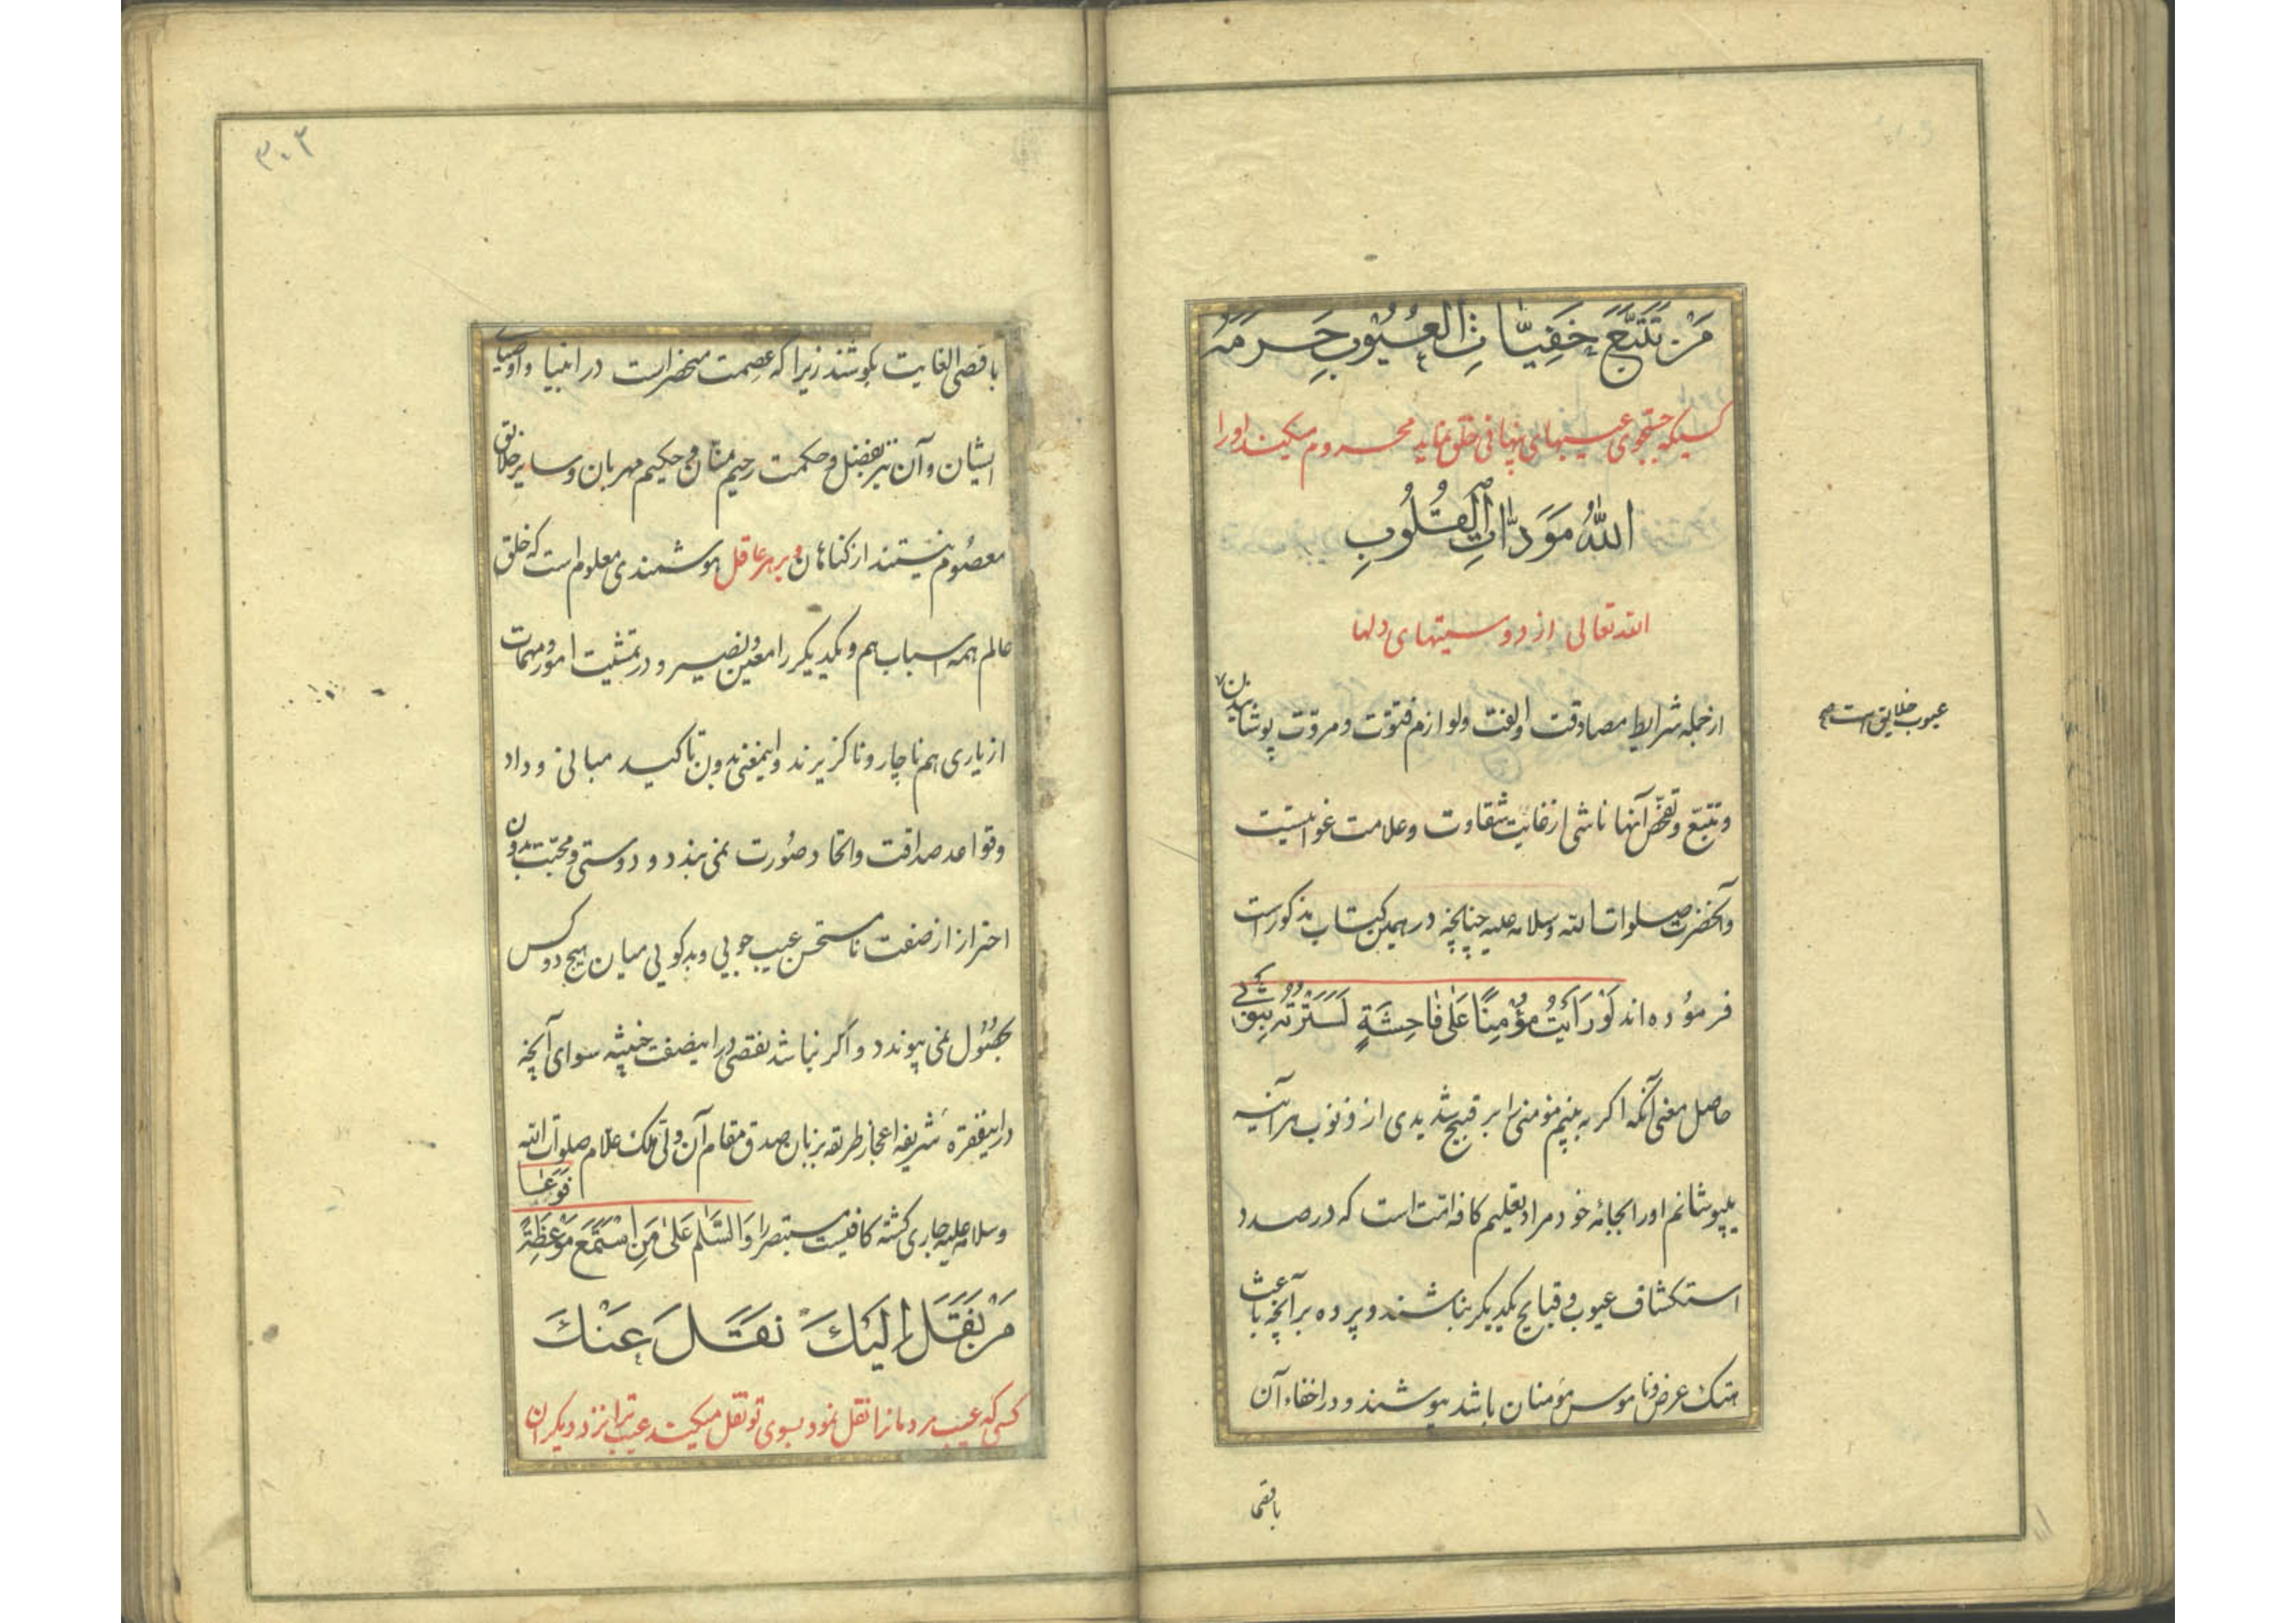 مَنْ تَتَبَّعَ خَفِيَّاتِ الْعُيُوبِ حَرَمَهُ
کسیکه جستجوی عیبهای پنهانی خلق نماید محروم میکند او را
اللهُ مَوَدَّاتِ الْقُلُوبِ
الله تعالی از دوستیهای دلها
از جمله شرایط مصادقت و الفت و لوازم فتوّت و مروّت پوشانیدن
عیوب خلایق است صح
و تتبّع و تفحّص آنها ناشی از غایت شقاوت و علامت غوایتست
و آنحضرت صلوات الله و سلامه علیه چنانچه در همین کتاب مذکور است
فرموده اند لَوْ رَأَيْتُ مُؤْمِنًا عَلٰى فَاحِشَةٍ لَسَتَرْتُهُ بِثَوْبِي
حاصل معنی آنکه اگر به بینم مؤمنی را بر قبیح شدیدی از ذنوب هر آینه
بپوشانم او را بجامه خود مراد تعلیم کافه امّت است که در صدد
استکشاف عیوب و قبایح یکدیگر نباشند و پرده بر آنچه باعث
هتک عرض و ناموس مؤمنان باشد بپوشند و در اخفاء آن
باقصی
۳۰۲
باقصی الغایت بکوشند زیرا که عصمت منحصر است در انبیا و اوصیای
ایشان و آن نیز بفضل و حکمت رحیم منّان و حکیم مهربان و سایر خلایق
معصوم نیستند از کناهان و بر هر عاقل هوشمندی معلوم است که خلق
عالم همه اسباب هم و یکدیگر را معین و نصیر و در تمشیت امور و مهمّات
از یاری هم ناچار و ناکزیرند و اینمعنی بدون تاکید مبانی وداد
و قواعد صداقت و اتحاد صورت نمی بندد و دوستی و محبّت بدون
احتراز از صفت نامستحسن عیب جویی و بدکویی میان هیچ دو کس
بحصول نمی پیوندد و اگر نباشد نقصی در اینصفت خبیثه سوای آنچه
در اینفقره شریفه اعجاز طریقه بزبان صدق مقام آن ولیّ ملک علّام صلوات الله
و سلامه علیه جاری کشته کافیست مستبصر را وَالسَّلٰمُ عَلٰى مَنِ اسْتَمَعَ مَوْعِظَةً فَوَعَا
مَنْ نَقَلَ اِلَيْكَ نَقَلَ عَنْكَ
کسی که عیب مردمانرا نقل نمود بسوی تو نقل میکند عیب ترا نزد دیکران